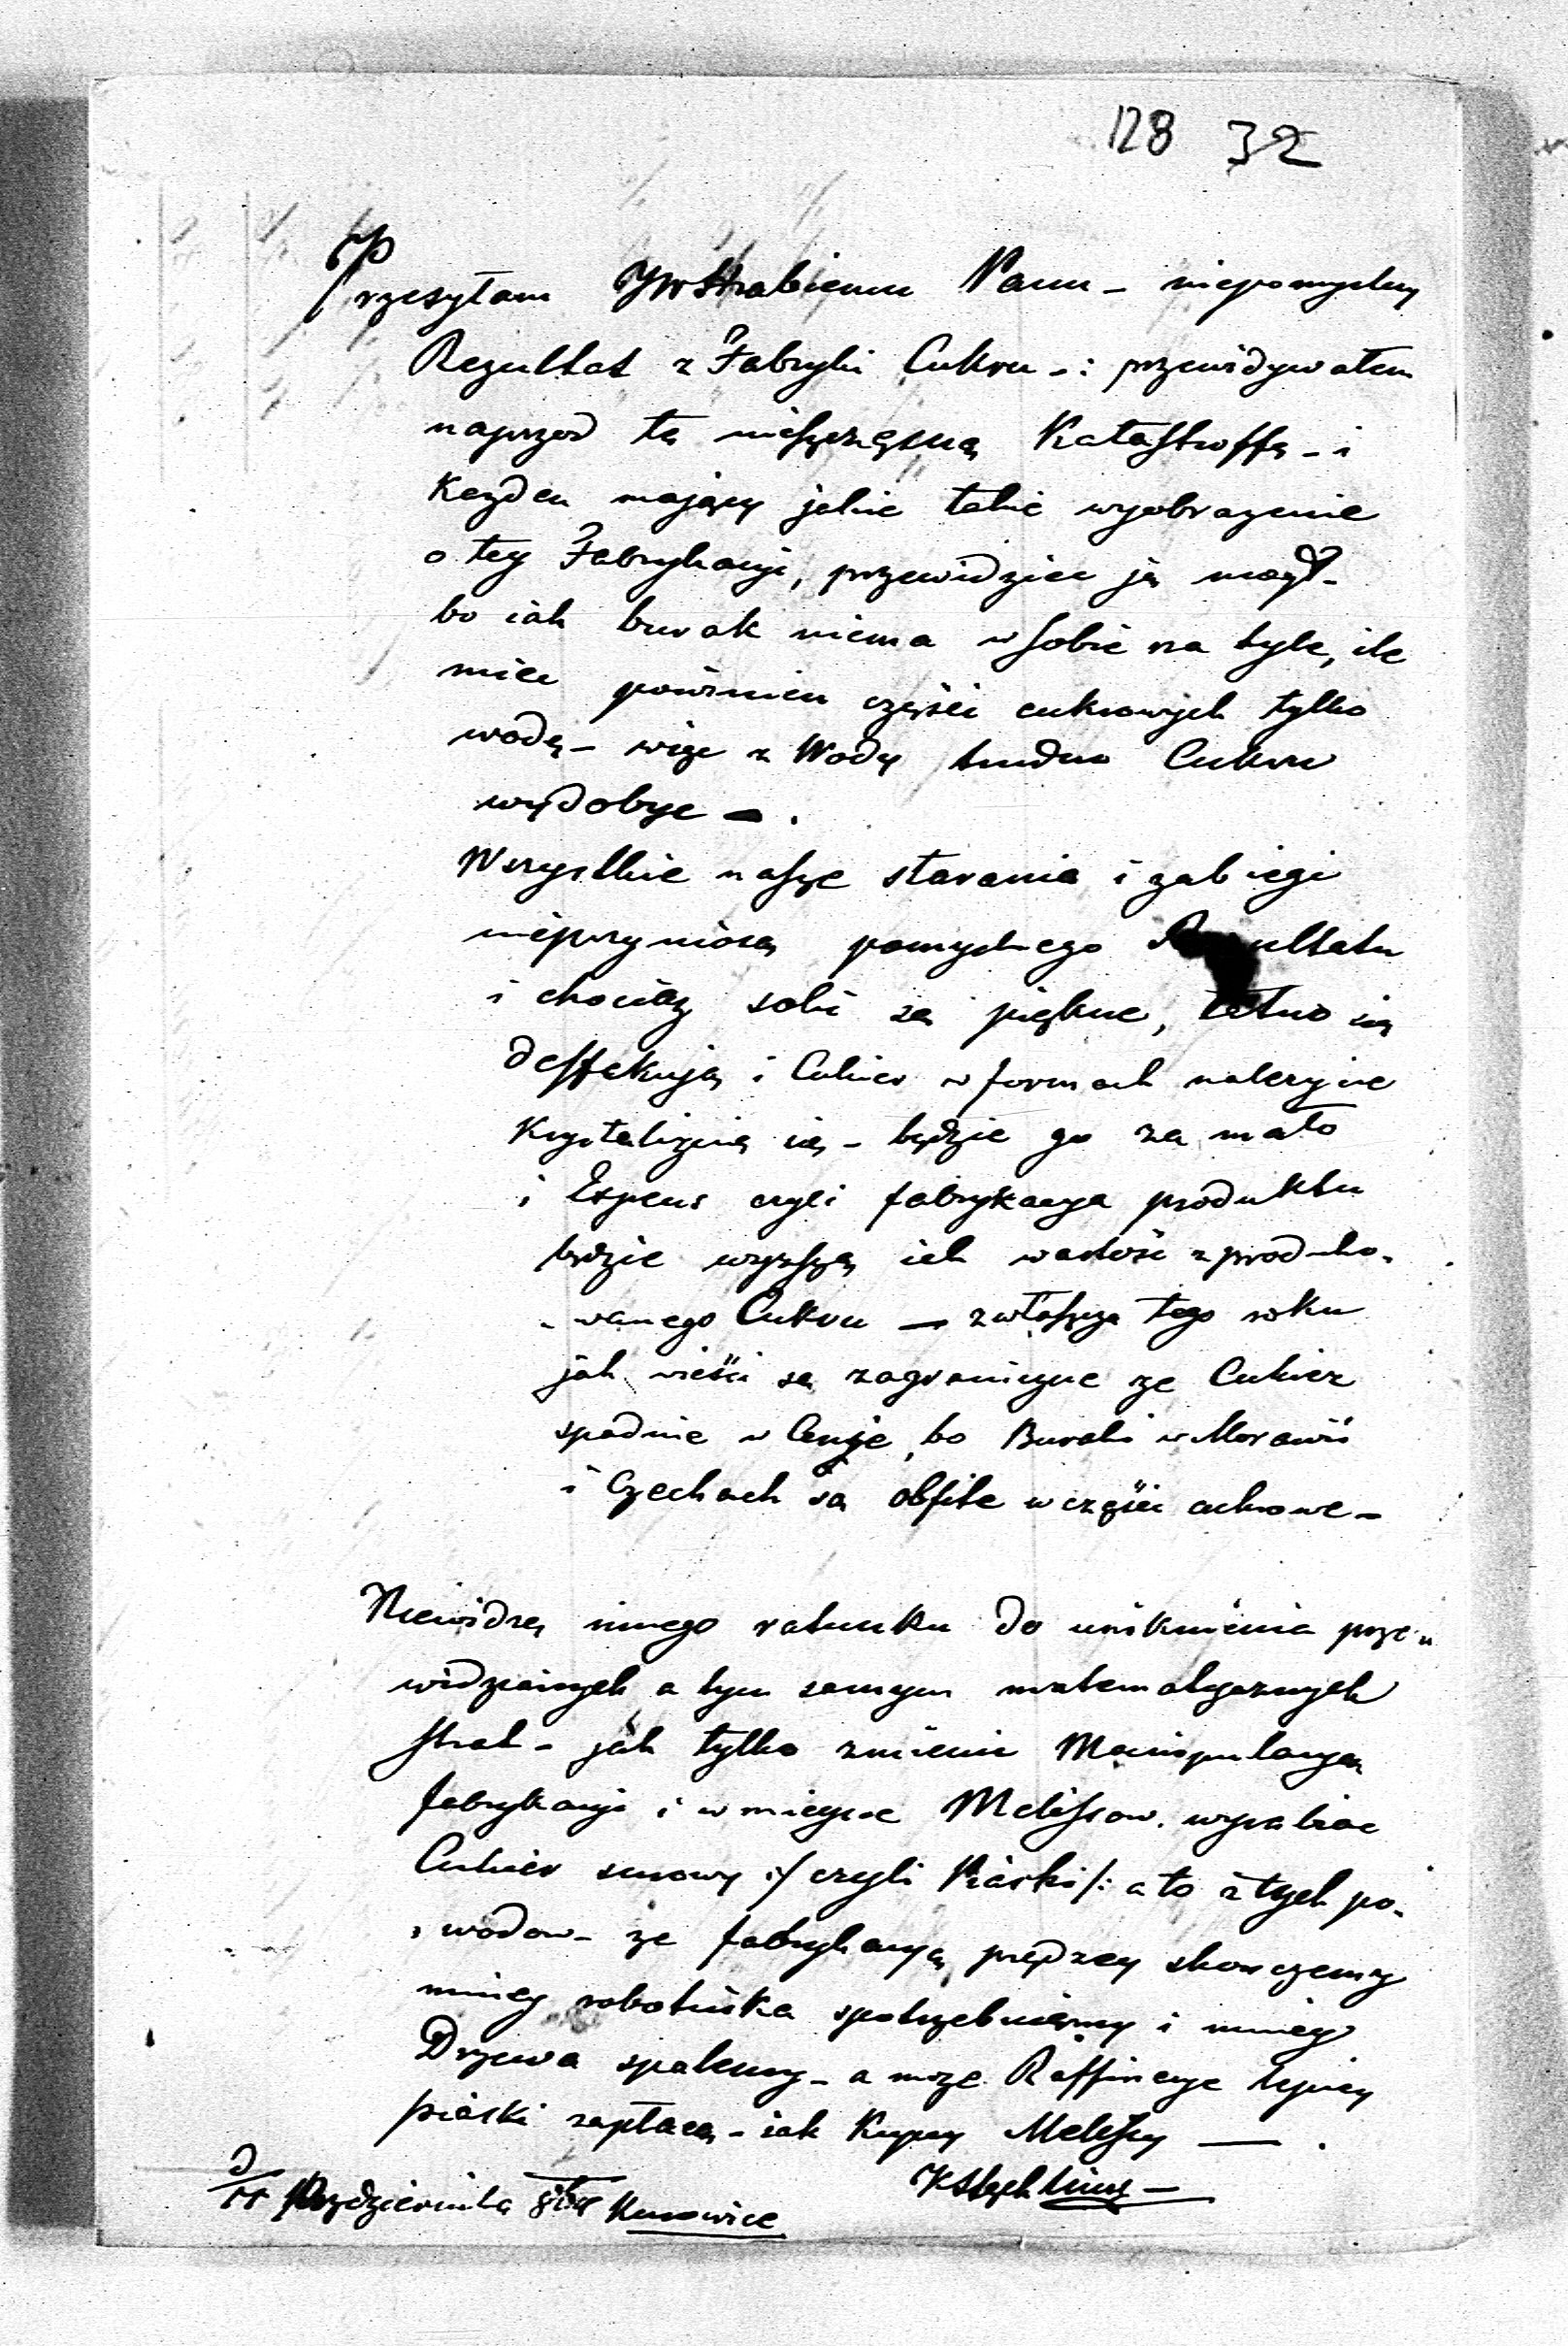 128 32
Przesyłam JWHrabiemu Panu - niepomyslny
Rezultat z Fabryki Cukru -: przewidywałem
naprzod tę niesczęsną Katastroffę - i
Kazden mający jakie takie wyobrazenie
o tey Fabrykacyi, przewidziec ją mogł -
bo iak burak niema w sobie na tyle, ile
miec powinien części cukrowych tylko
wodę - więc z Wody trudno Cukru
wydobyc - .
Wszystkie nasze starania i zabiegi
nieprzyniosą pomyslnego Rezultatu
i chociaz soki są piękne, łatwo się
deffekują i Cukier w formach nalezycie
Krystalizuie się - będzie go za mało
i Expens czyli fabrykacya produktu
będzie wyzszą iak wartość zproduko-
- wanego Cukru - zwłaszcza tego roku
jak wieści są zagraniczne ze Cukier
spadnie w Cenie, bo Buraki w Morawii
i Czechach są obfite w części cukrowe -
Niewidzę innego ratunku do uniknienia prze-
widzianych a tym samym matematycznych
strat - jak tylko zmienic Manipulacyą
fabrykacyi i w mieysce Melissow wyrabiac
Cukier surowy :/ czyli Piaski /: a to z tych po-
- wodow - ze fabrykacyą prędzey skonczemy
mniey robotnika spotrzebuiemy i mniey
Drzewa spalemy - a moze Raffinerye lepiey
piaski zapłacą - iak Kupcy Melissy - .
d/11 Pazdziernika Kurowice